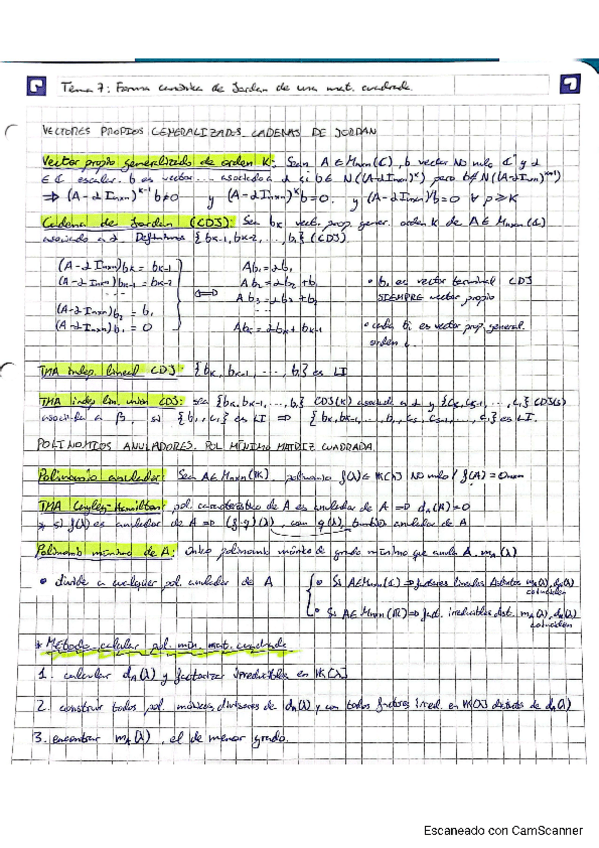 Tema 7: Forma canónica de Jordan de una mat. cuadrada
VECTORES PROPIOS GENERALIZADOS. CADENAS DE JORDAN
Vector propio generalizado de orden K: Sean A ∈ Mnxn(C), b vector NO nulo C^n y λ
∈ C escalar. b es vector... asociado a λ si b ∈ N((A-λInxn)^K) pero b ∉ N((A-λInxn)^K-1)
⇒ (A-λInxn)^K-1 b≠0 y (A-λInxn)^K b=0. y (A-λInxn)^p b=0 ∀ p≥K
Cadena de Jordan (CDJ): Sea bK vect. prop. gener. orden K de A ∈ Mnxn(C)
asociado a λ. Definimos {bK-1, bK-2, ..., b1} (CDJ)
(A-λInxn)bK = bK-1
(A-λInxn)bK-1 = bK-2
...
(A-λInxn)b2 = b1
(A-λInxn)b1 = 0
⇔
Ab1 = λb1
Ab2 = λb2 + b1
Ab3 = λb3 + b2
AbK = λbK + bK-1
• b1 es vector terminal CDJ
SIEMPRE vector propio
• cada bi es vector prop. general.
orden i
TMA indep. lineal CDJ: {bK, bK-1, ..., b1} es LI
TMA indep. lin. unión CDJ: sea {bK, bK-1, ..., b1} CDJ(K) asociada a λ y {cs, cs-1, ..., c1} CDJ(s)
asociada a β, si {b1, c1} es LI ⇒ {bK, bK-1, ..., b1, cs, cs-1, ..., c1} es LI.
POLINOMIOS ANULADORES. POL MÍNIMO MATRIZ CUADRADA
Polinomio anulador: Sea A ∈ Mnxn(K). polinomio f(λ) ∈ K[λ] NO nulo / f(A) = 0nxn
TMA Cayley-Hamilton: pol. característico de A es anulador de A ⇒ dA(A)=0
* si f(λ) es anulador de A ⇒ (f·g)(λ), con g(λ), también anulador de A
Polinomio mínimo de A: único polinomio mónico de grado mínimo que anula A. mA(λ)
• divide a cualquier pol. anulador de A
• Si A ∈ Mnxn(C) ⇒ factores lineales distintos mA(λ), dA(λ)
coinciden
• Si A ∈ Mnxn(R) ⇒ fact. irreducibles dist. mA(λ), dA(λ)
coinciden
* Método calcular pol. mín. mat. cuadrada
1. calcular dA(λ) y factorizar irreducibles en K[λ]
2. construir todos pol. mónicos divisores de dA(λ) y con todos factores irred. en K[λ] distintos de dA(λ)
3. encontrar mA(λ), el de menor grado.
Escaneado con CamScanner